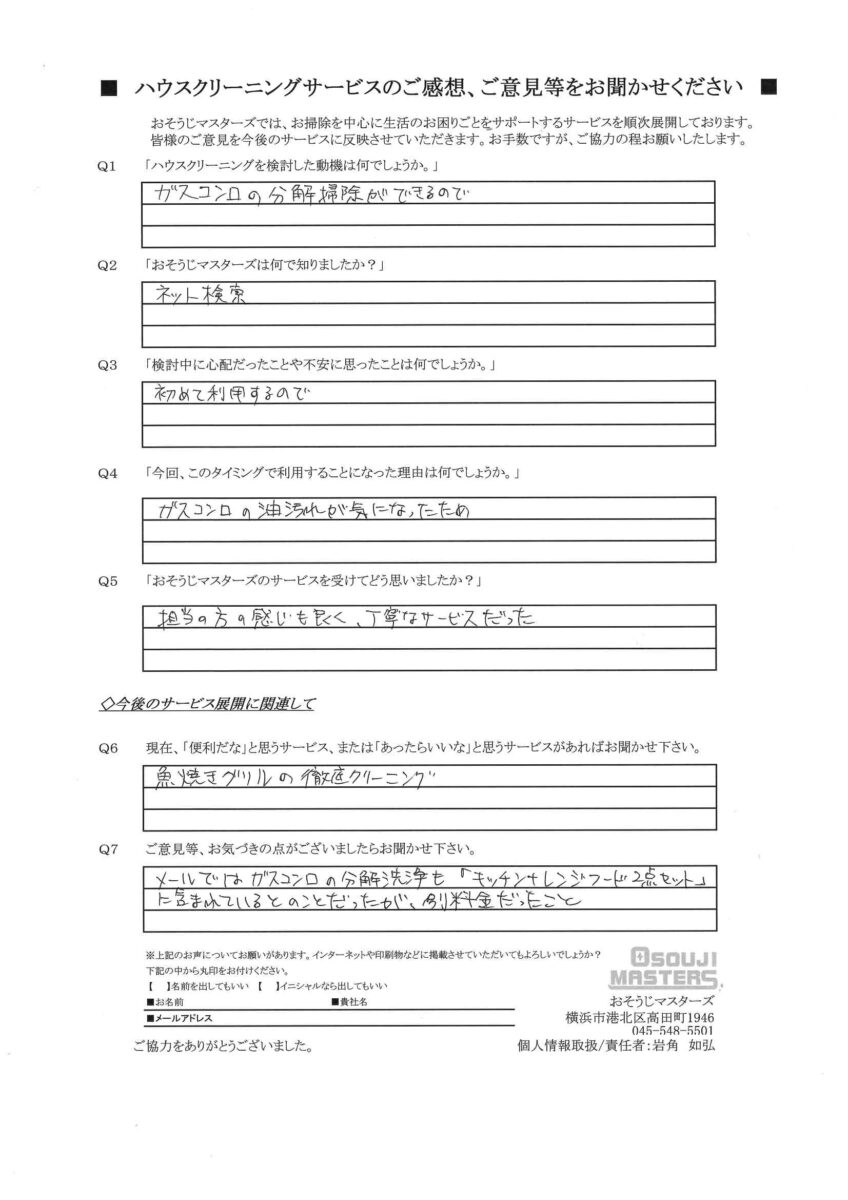 ■ ハウスクリーニングサービスのご感想、ご意見等をお聞かせください ■
おそうじマスターズでは、お掃除を中心に生活のお困りごとをサポートするサービスを順次展開しております。
皆様のご意見を今後のサービスに反映させていただきます。お手数ですが、ご協力の程お願いしたします。
Q1 「ハウスクリーニングを検討した動機は何でしょうか。」
ガスコンロの分解掃除ができるので
Q2 「おそうじマスターズは何で知りましたか？」
ネット検索
Q3 「検討中に心配だったことや不安に思ったことは何でしょうか。」
初めて利用するので
Q4 「今回、このタイミングで利用することになった理由は何でしょうか。」
ガスコンロの油汚れが気になったため
Q5 「おそうじマスターズのサービスを受けてどう思いましたか？」
担当の方の感じも良く、丁寧なサービスだった
◇今後のサービス展開に関連して
Q6 現在、「便利だな」と思うサービス、または「あったらいいな」と思うサービスがあればお聞かせ下さい。
魚焼きグリルの徹底クリーニング
Q7 ご意見等、お気づきの点がございましたらお聞かせ下さい。
メールではガスコンロの分解洗浄も「キッチン+レンジフード2点セット」
に含まれているとのことだったが、別料金だったこと
※上記のお声についてお願いがあります。インターネットや印刷物などに掲載させていただいてもよろしいでしょうか？
下記の中から丸印をお付けください。
【　】名前を出してもいい 【　】イニシャルなら出してもいい
■お名前 ■貴社名
■メールアドレス
ご協力をありがとうございました。
OSOUJI
MASTERS
おそうじマスターズ
横浜市港北区高田町1946
045-548-5501
個人情報取扱/責任者:岩角　如弘